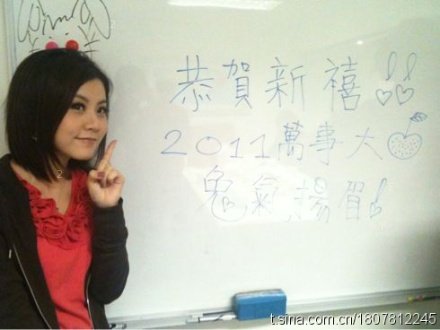 恭賀新禧!!
2011萬事大
兔氣揚眉!
t.sina.com.cn/1807812245